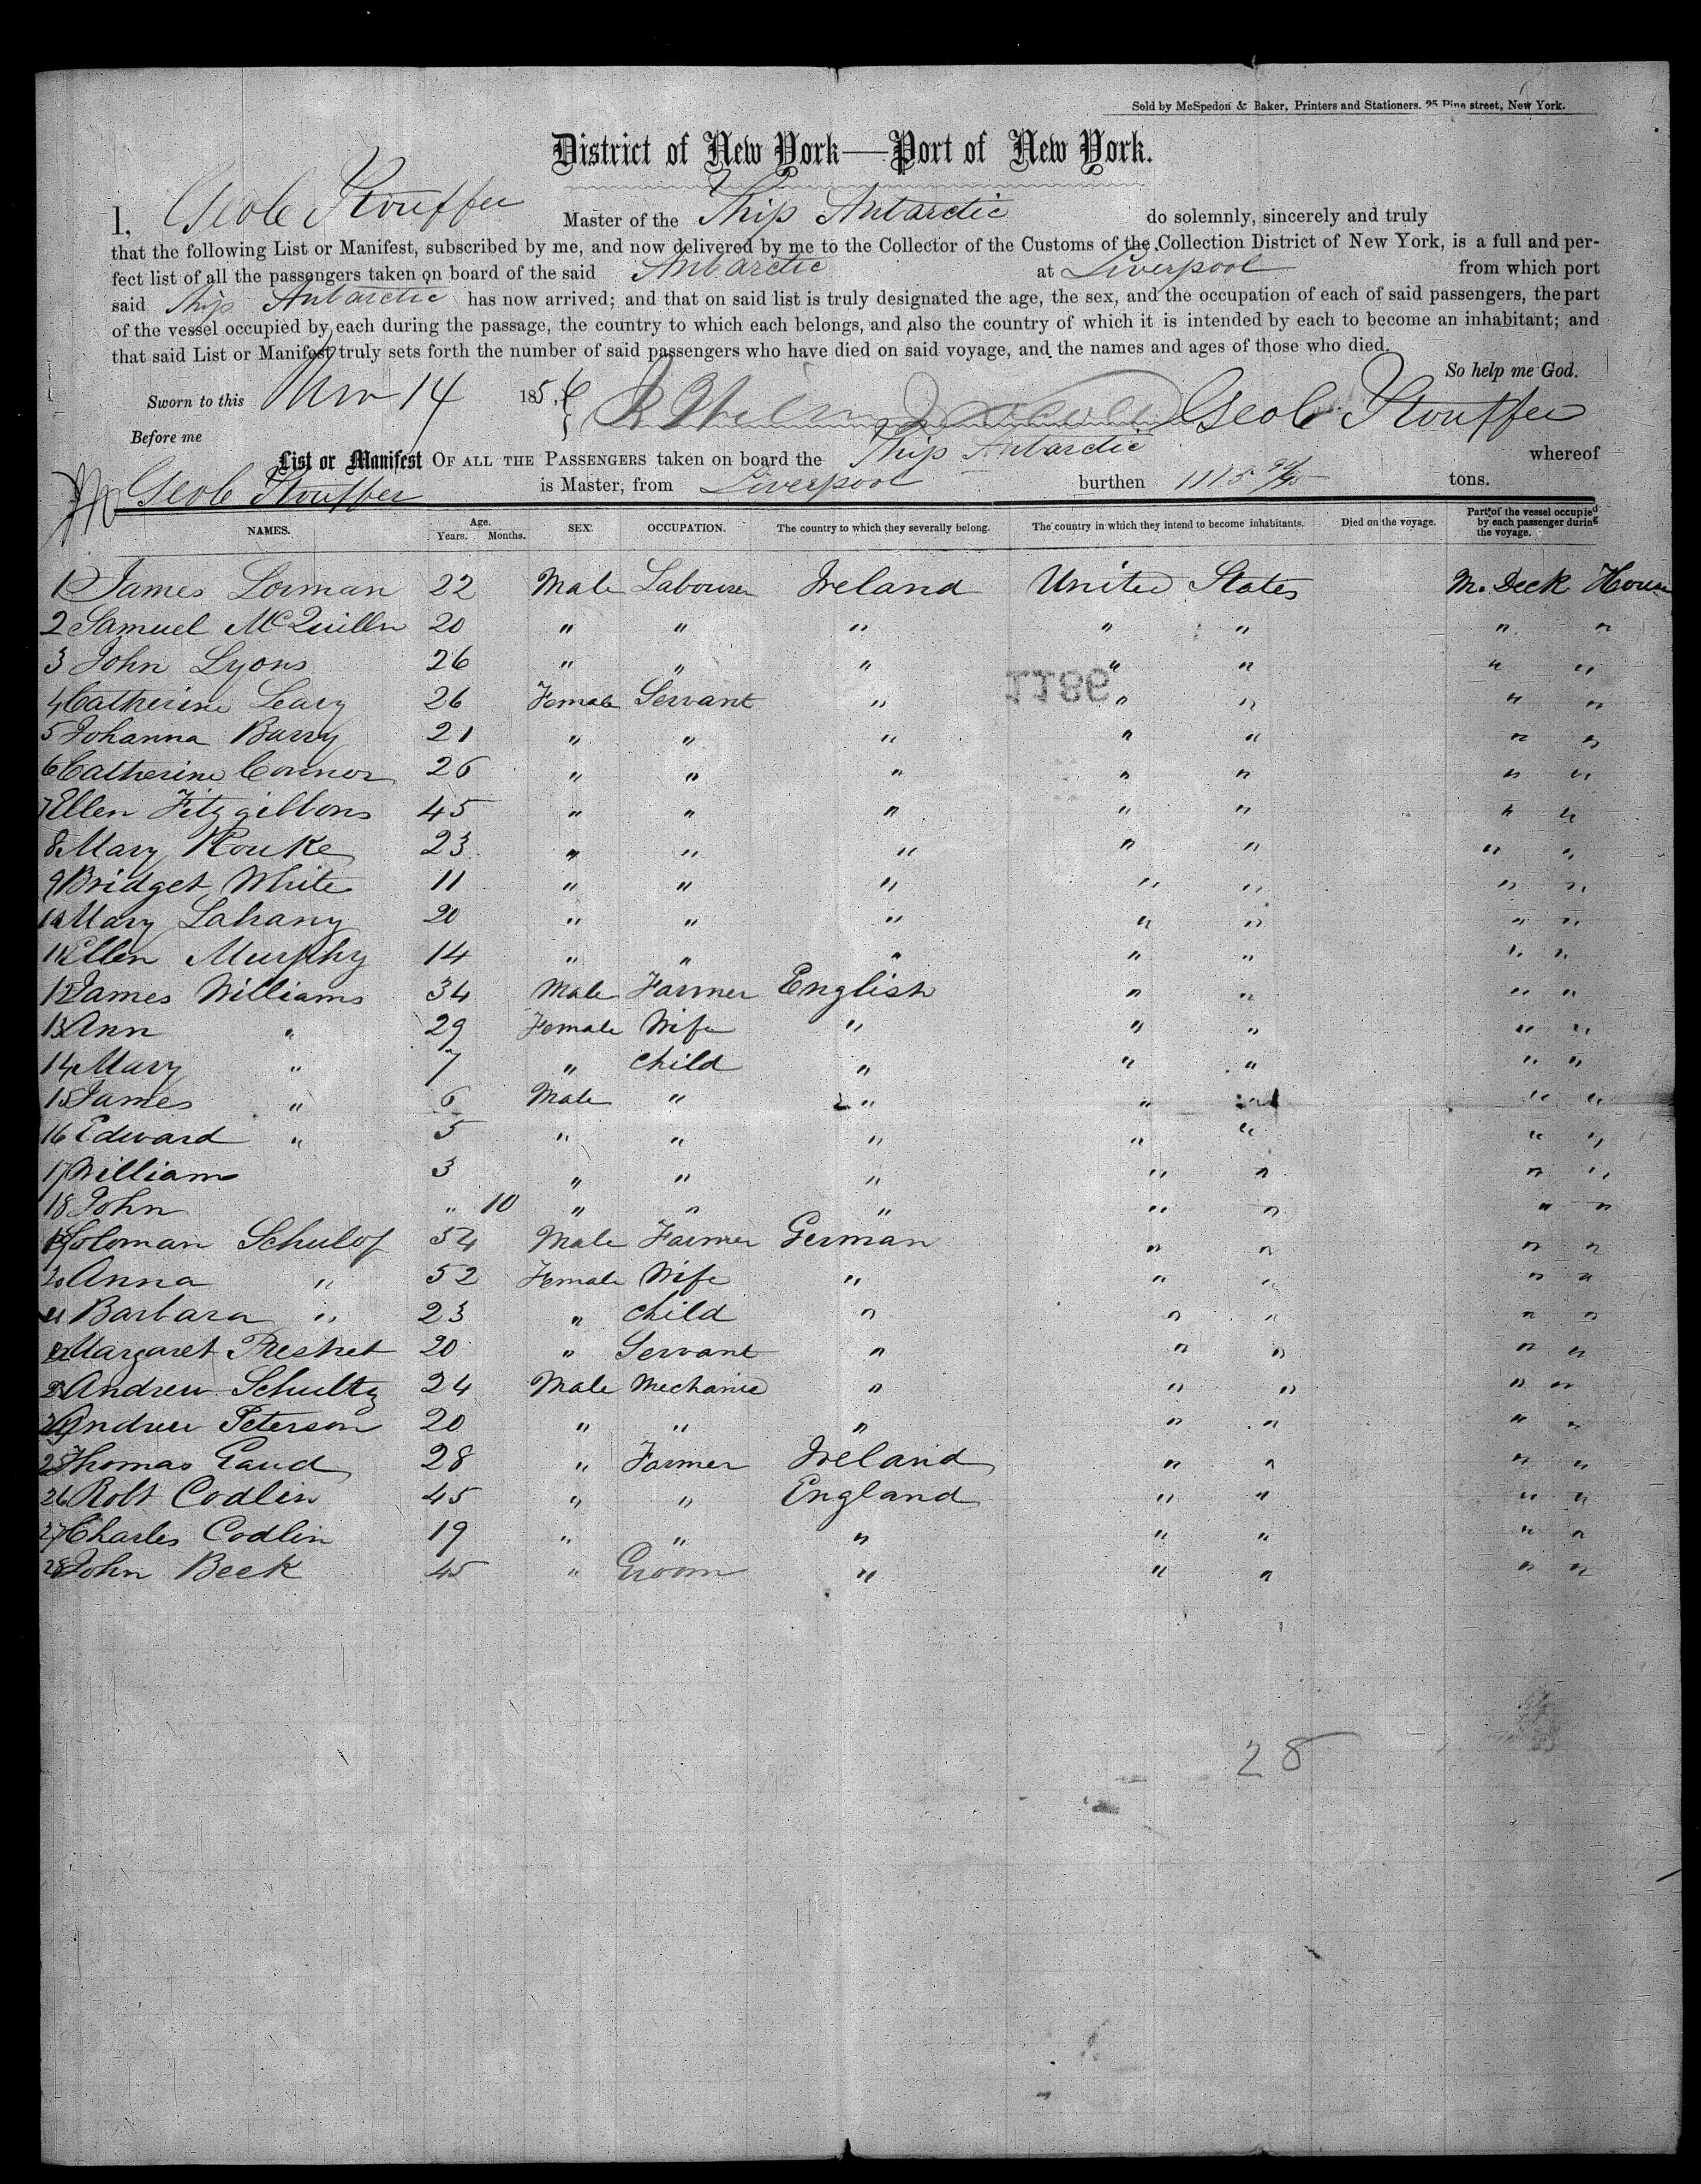 Sold by McSpedon & Baker, Printers and Stationers. 25 Pine street, New York.
District of New York—Port of New York.
I, Geo C Stouffer Master of the Ship Antarctic do solemnly, sincerely and truly
that the following List or Manifest, subscribed by me, and now delivered by me to the Collector of the Customs of the Collection District of New York, is a full and per-
fect list of all the passengers taken on board of the said Antarctic at Liverpool from which port
said Ship Antarctic has now arrived; and that on said list is truly designated the age, the sex, and the occupation of each of said passengers, the part
of the vessel occupied by each during the passage, the country to which each belongs, and also the country of which it is intended by each to become an inhabitant; and
that said List or Manifest truly sets forth the number of said passengers who have died on said voyage, and the names and ages of those who died.
So help me God.
Sworn to this Nov 14 185 Geo C Stouffer
Before me
List or Manifest OF ALL THE PASSENGERS taken on board the Ship Antarctic whereof
Geo C Stouffer is Master, from Liverpool burthen 1115 tons.
NAMES. Age. Years. Months. SEX. OCCUPATION. The country to which they severally belong. The country in which they intend to become inhabitants. Died on the voyage. Part of the vessel occupied by each passenger during the voyage.
1 James Lorman 22 Male Labourer Ireland United States M. Deck House
2 Samuel McQuillin 20 " " " " " " "
3 John Lyons 26 " " " " " " "
1186
4 Catherine Leary 26 Female Servant " " " " "
5 Johanna Barry 21 " " " " " " "
6 Catherine Connor 26 " " " " " " "
7 Ellen Fitzgibbons 45 " " " " " " "
8 Mary Rouke 23 " " " " " " "
9 Bridget White 11 " " " " " " "
10 Mary Lahany 20 " " " " " " "
11 Ellen Murphy 14 " " " " " " "
12 James Williams 34 Male Farmer English " " " "
13 Ann " 29 Female Wife " " " " "
14 Mary " 7 " child " " " " "
15 James " 6 Male " " " " " "
16 Edward " 5 " " " " " " "
17 William 3 " " " " " " "
18 John " 10 " " " " " " "
19 Soloman Schulof 54 Male Farmer German " " " "
20 Anna " 52 Female Wife " " " " "
21 Barbara " 23 " child " " " " "
22 Margaret Preshet 20 " Servant " " " " "
23 Andrew Schultz 24 Male Mechanic " " " " "
24 Andrew Peterson 20 " " " " " " "
25 Thomas Gaud 28 " Farmer Ireland " " " "
26 Robt Codlin 45 " " England " " " "
27 Charles Codlin 19 " " " " " " "
28 John Beek 45 " Groom " " " " "
28